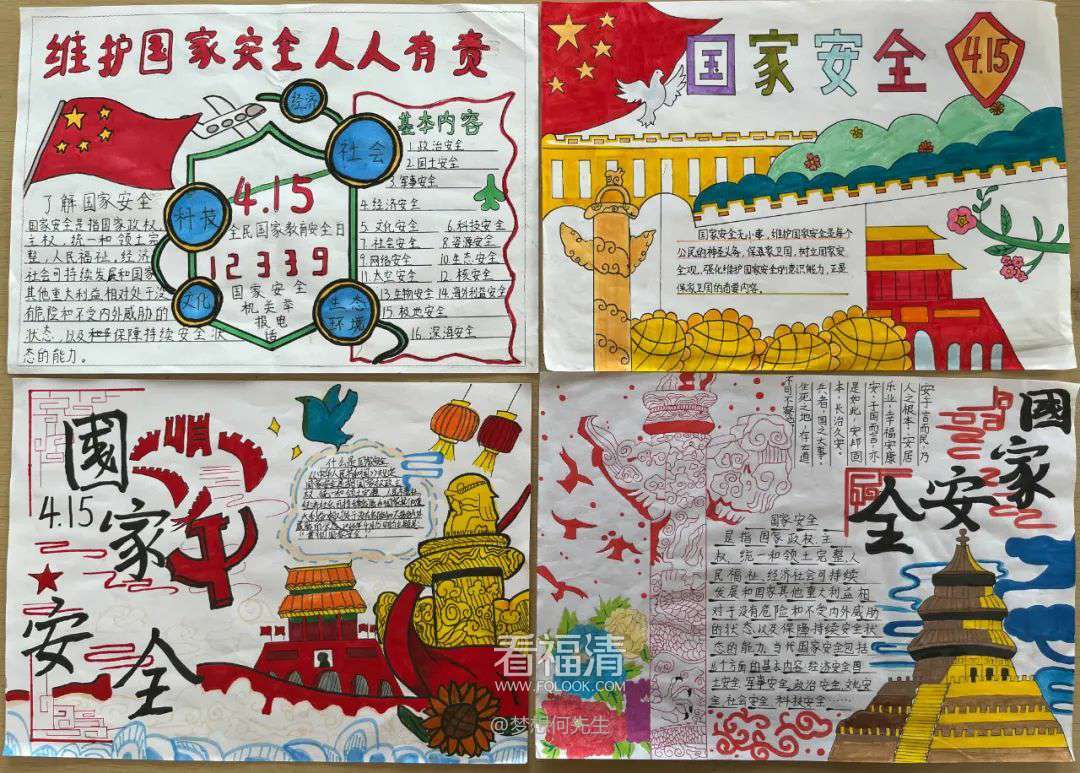 维护国家安全人人有责
经济
社会
科技
文化
生态
环境
4.15
全民国家教育安全日
12339
国家安全
机关举
报电
话
了解国家安全
国家安全是指国家政权、
主权、统一和领土完
整、人民福祉、经济
社会可持续发展和国家
其他重大利益相对处于没
有危险和不受内外威胁的
状态，以及保障持续安全状
态的能力。
基本内容
1.政治安全
2.国土安全
3.军事安全
4.经济安全
5.文化安全 6.科技安全
7.社会安全 8.资源安全
9.网络安全 10.生态安全
11.太空安全 12.核安全
13.生物安全 14.海外利益安全
15.极地安全
16.深海安全
国家安全
4.15
国家安全无小事，维护国家安全是每个
公民的神圣义务，保
卫国，树立国家安
全观，强化维护国家安全的意识能力，正是
保家卫国的首要内容。
國家安全
4.15
什么是国家安全
國家安全
安于言而民乃
人之根本·安居
乐业·幸福安康
安·士国而言·亦
是如此·安邦固
本·长治久安·
兵者·国之大事·
生死之地·存亡道
不可不察
国家安全
是指国家政权、主
权、统一和领土完整、人
民福祉、经济社会可持续
发展和国家其他重大利益相
对于没有危险和不受内外威胁
的状态以及保障持续安全状
态的能力。当代国家安全包括
个方面的基本内容：经济安全国
土安全、军事安全、政治安全、文化安
全、社会安全、科技安全……
看福清
WWW.FQLOOK.COM
@梦想何先生